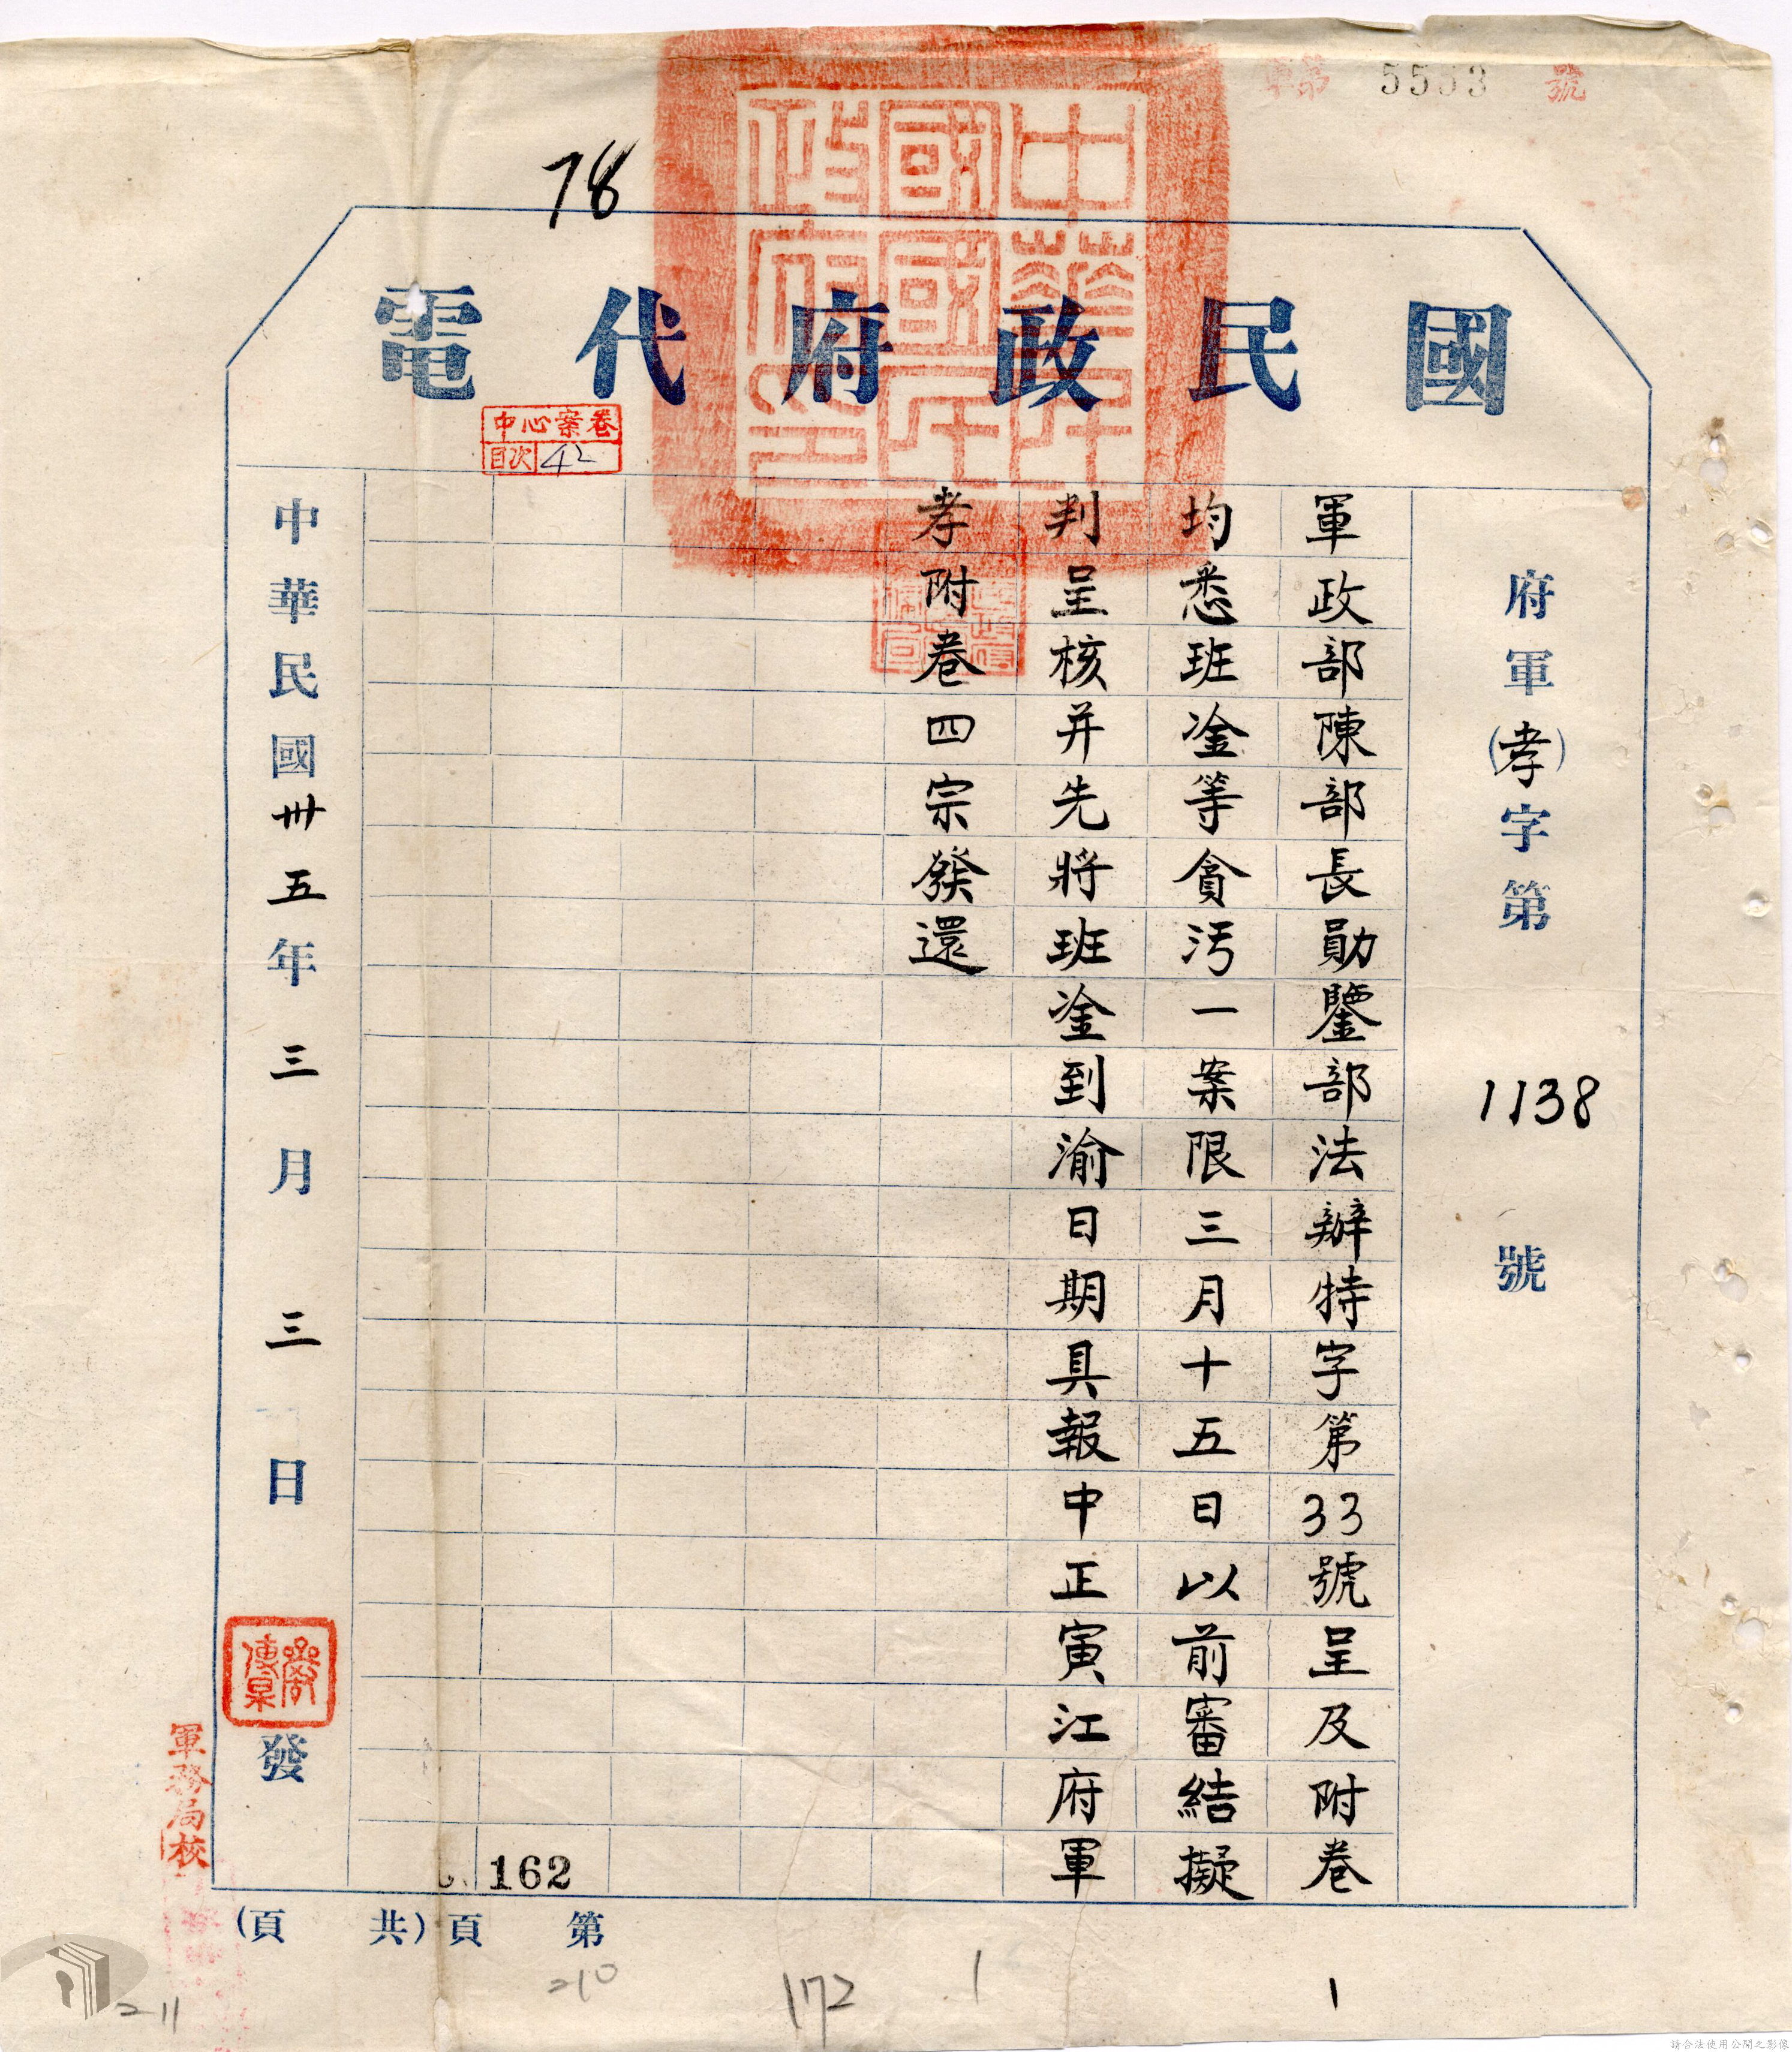 第 5553 號
78
國民政府代電
中華民國國民政府之印
中心案卷
目次 42
府軍(孝)字第 1138 號
軍政部陳部長勛鑒部法辦特字第33號呈及附卷
均悉班淦等貪污一案限三月十五日以前審結擬
判呈核并先將班淦到渝日期具報中正寅江府軍
孝附卷四宗發還
中華民國卅五年三月三日
發
軍務局校
162
第 頁(共 頁)
210
172
1
1
211
請合法使用公開之影像